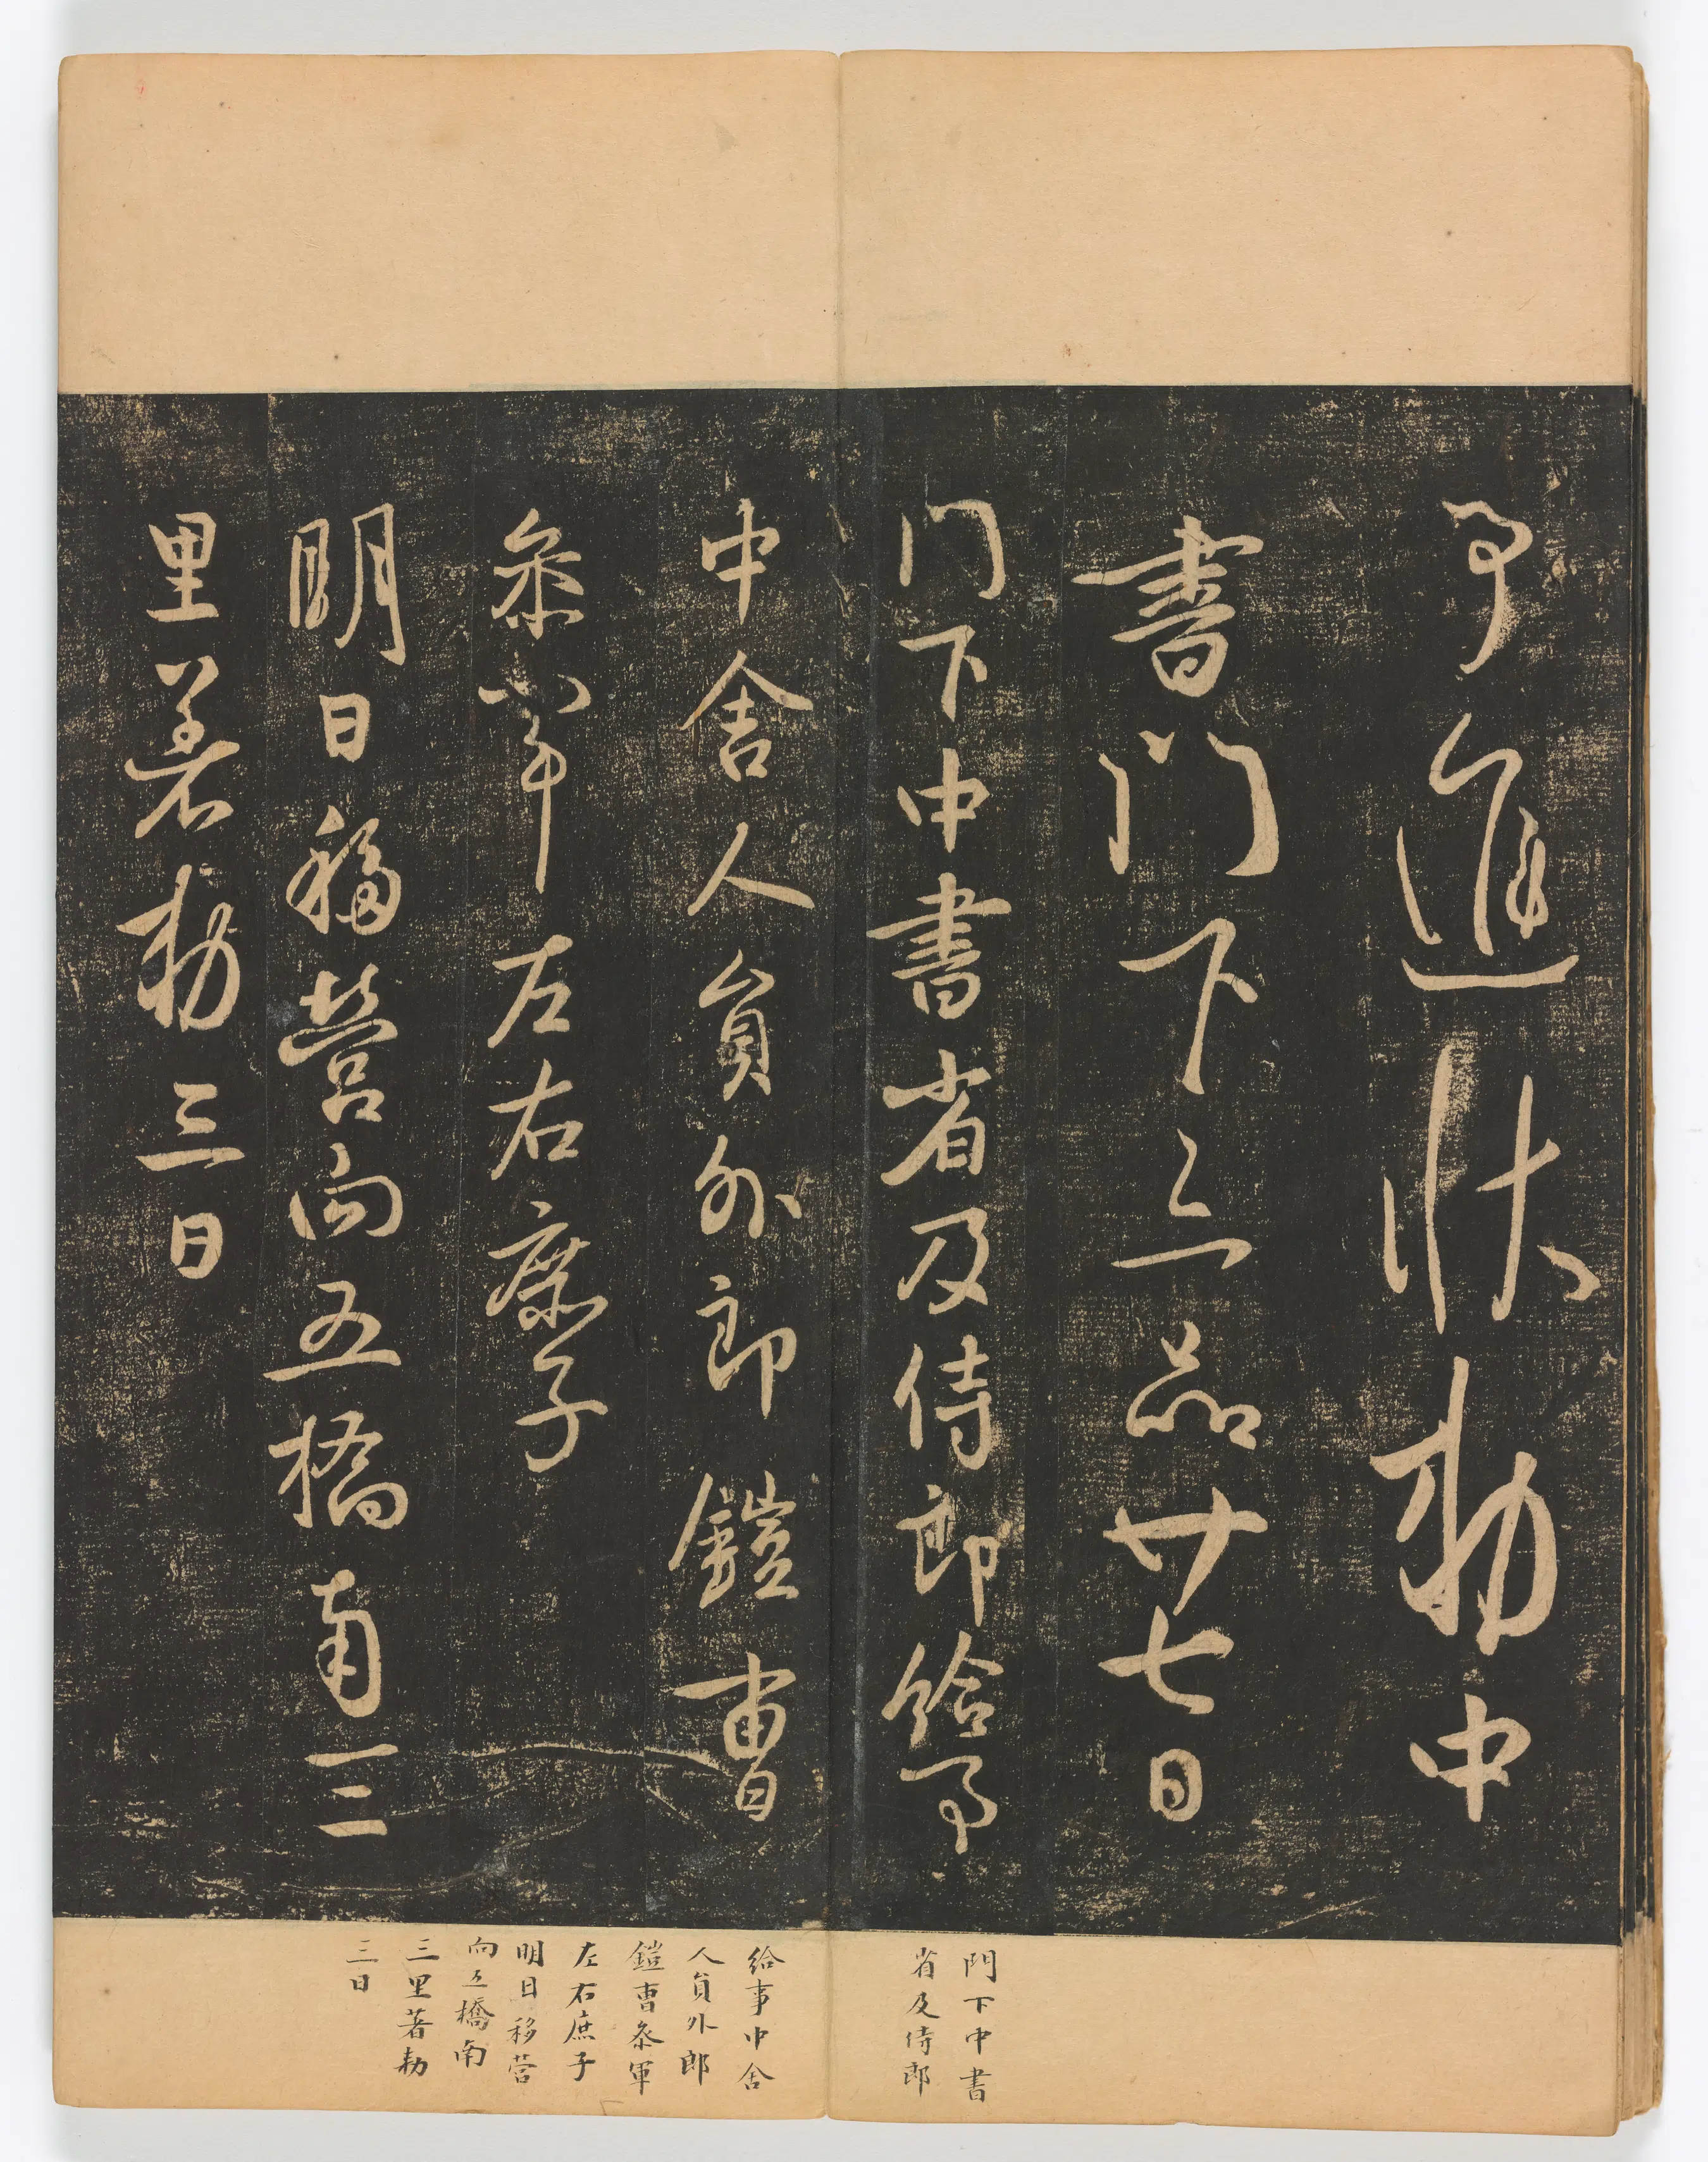 事進狀勅中
書門下三品廿七日
門下中書省及侍郎給事
中舍人員外郎鎧曹
叅軍左右庶子
明日移營向五橋南三
里著勅三日
門下中書
省及侍郎
給事中舍
人員外郎
鎧曹叅軍
左右庶子
明日移營
向五橋南
三里著勅
三日